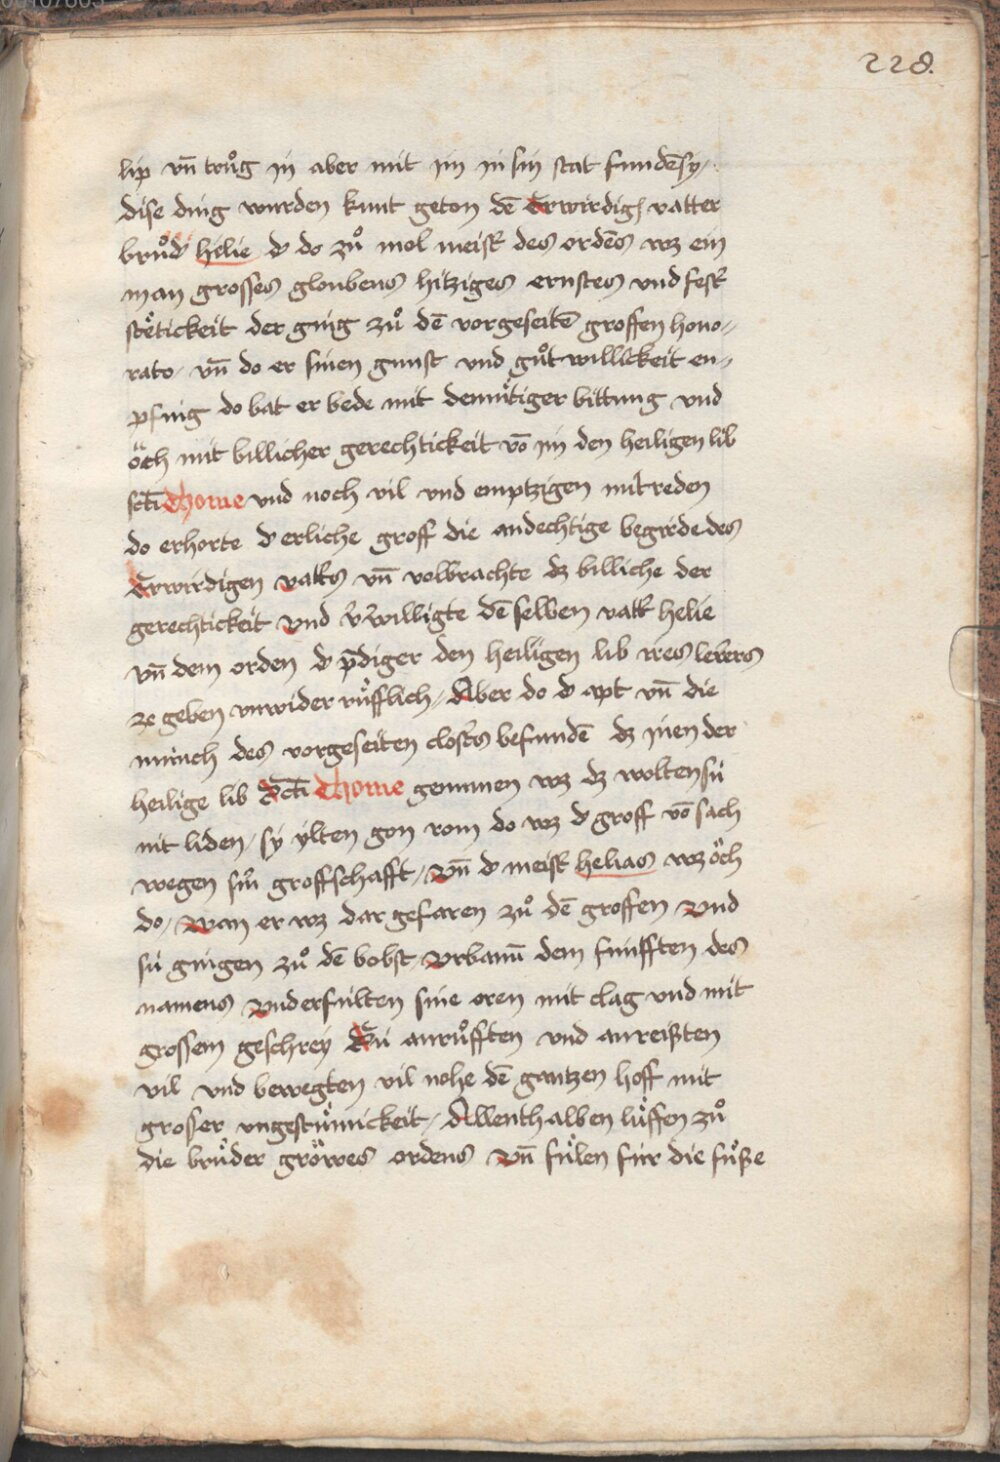 228.
lip vn̄ truͦg in aber mit im in sin stat fundēsy /
dise ding wurden kunt geton dē Erwirdigē vatter
bruͦd̕ helie d̕ do zuͦ mol meist̕ des ordēs wz ein
man grosses gloubens hitziges ernstes vnd fest̕
stëtickeit der ging zuͦ dē vorgeseitē groffen hono-
rato / vn̄ do er sinen gunst vnd guͦtwillickeit en-
pfing do bat er bede mit demuͤtiger bittung vnd
oͤch mit billicher gerechtickeit vō im den heiligen lib
sct̄i Thome vnd noch vil vnd emptzigen mitreden
do erhorte d̕ erliche groff die andechtige begirde des
Erwirdigen vatt̕s vn̄ volbrachte dz billiche der
gerechtickeit vnd v̕willigte dē selben vatt̕ helie
vn̄ dem orden d̕ p̄diger den heiligen lib ires lerers
ze geben vnwider ruͤfflich / Aber do d̕ apt vn̄ die
münch des vorgeseiten clost̕s befundē dz inen der
heilige lib Sct̄i Thome genumen wz dz wolten sü
nit liden / sy ylten gon rom do wz d̕ groff vō sach
wegen sin̕ groffschafft / vn̄ d̕ meist̕ helias wz oͤch
do / wan er wz dar gefaren zuͦ dē groffen vnd
sü gingen zuͦ dē bobst vrbanū dem fünfften des
namens vnd erfülten sine oren mit clag vnd mit
grossem geschrey Sü anruͦfften vnd anreißten
vil vnd bewegten vil nohe dē gantzen hoff mit
grosser vngestuͤmickeit / Allenthalben lüffen zuͦ
die bruͤder gröwes ordens vn̄ fuͤlen für die fuͤße